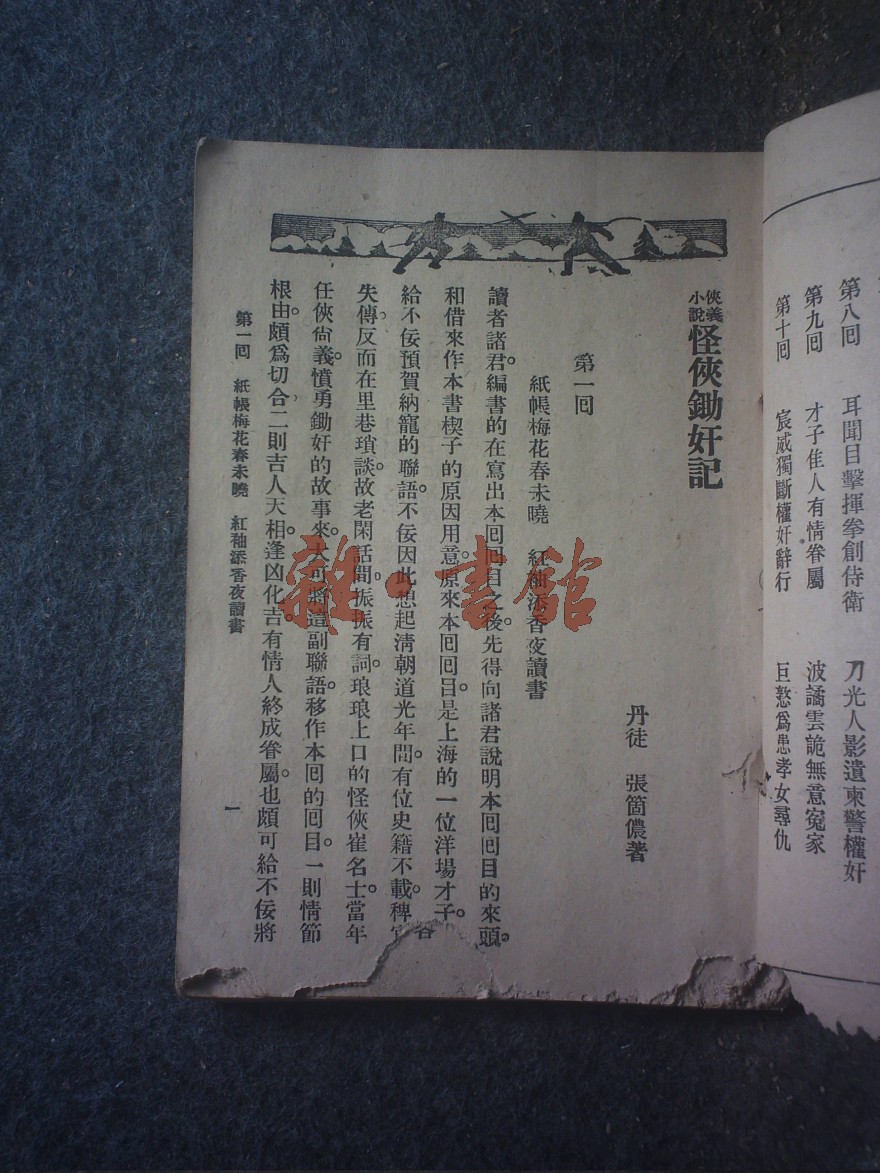 第八回 耳聞目擊揮拳創侍衛 刀光人影遺柬警權奸
第九回 才子佳人有情眷屬 波譎雲詭無意冤家
第十回 宸威獨斷權奸辭行 巨憝爲患孝女尋仇
俠義小說 怪俠鋤奸記
丹徒 張箇儂著
第一回
紙帳梅花春未曉 紅袖添香夜讀書
讀者諸君。編書的在寫出本回回目之後。先得向諸君說明本回回目的來頭。
和借來作本書楔子的原因用意。原來本回回目。是上海的一位洋場才子。
給不佞預賀納寵的聯語。不佞因此想起清朝道光年間。有位史籍不載。稗
失傳。反而在里巷瑣談。故老閑話間。振振有詞。琅琅上口的怪俠崔名士。當年
任俠尙義。憤勇鋤奸的故事來。大可將這副聯語。移作本回的回目。一則情節
根由。頗爲切合。二則吉人天相。逢凶化吉。有情人終成眷屬。也頗可給不佞將
第一回 紙帳梅花春未曉 紅袖添香夜讀書
一
雜·書館